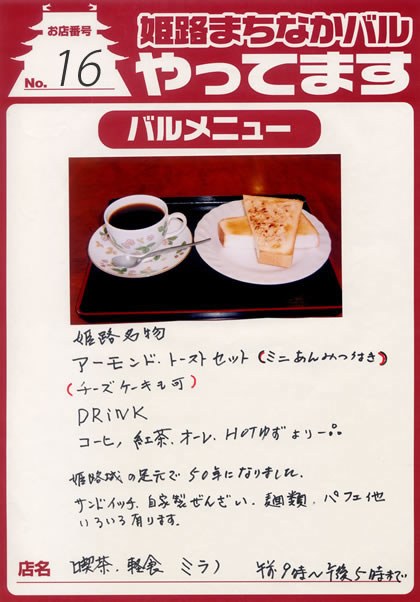 お店番号
No. 16
姫路まちなかバル
やってます
バルメニュー
姫路名物
アーモンド・トーストセット(ミニあんみつ付き)
(チーズケーキも可)
DRiNK
コーヒー, 紅茶. オーレ. HOTゆず より一つ
姫路城の足元で50年になりました.
サンドイッチ. 自家製ぜんざい. 麺類. パフェ他
いろいろ有ります.
店名 喫茶. 軽食 ミラノ 午前9時〜午後5時まで